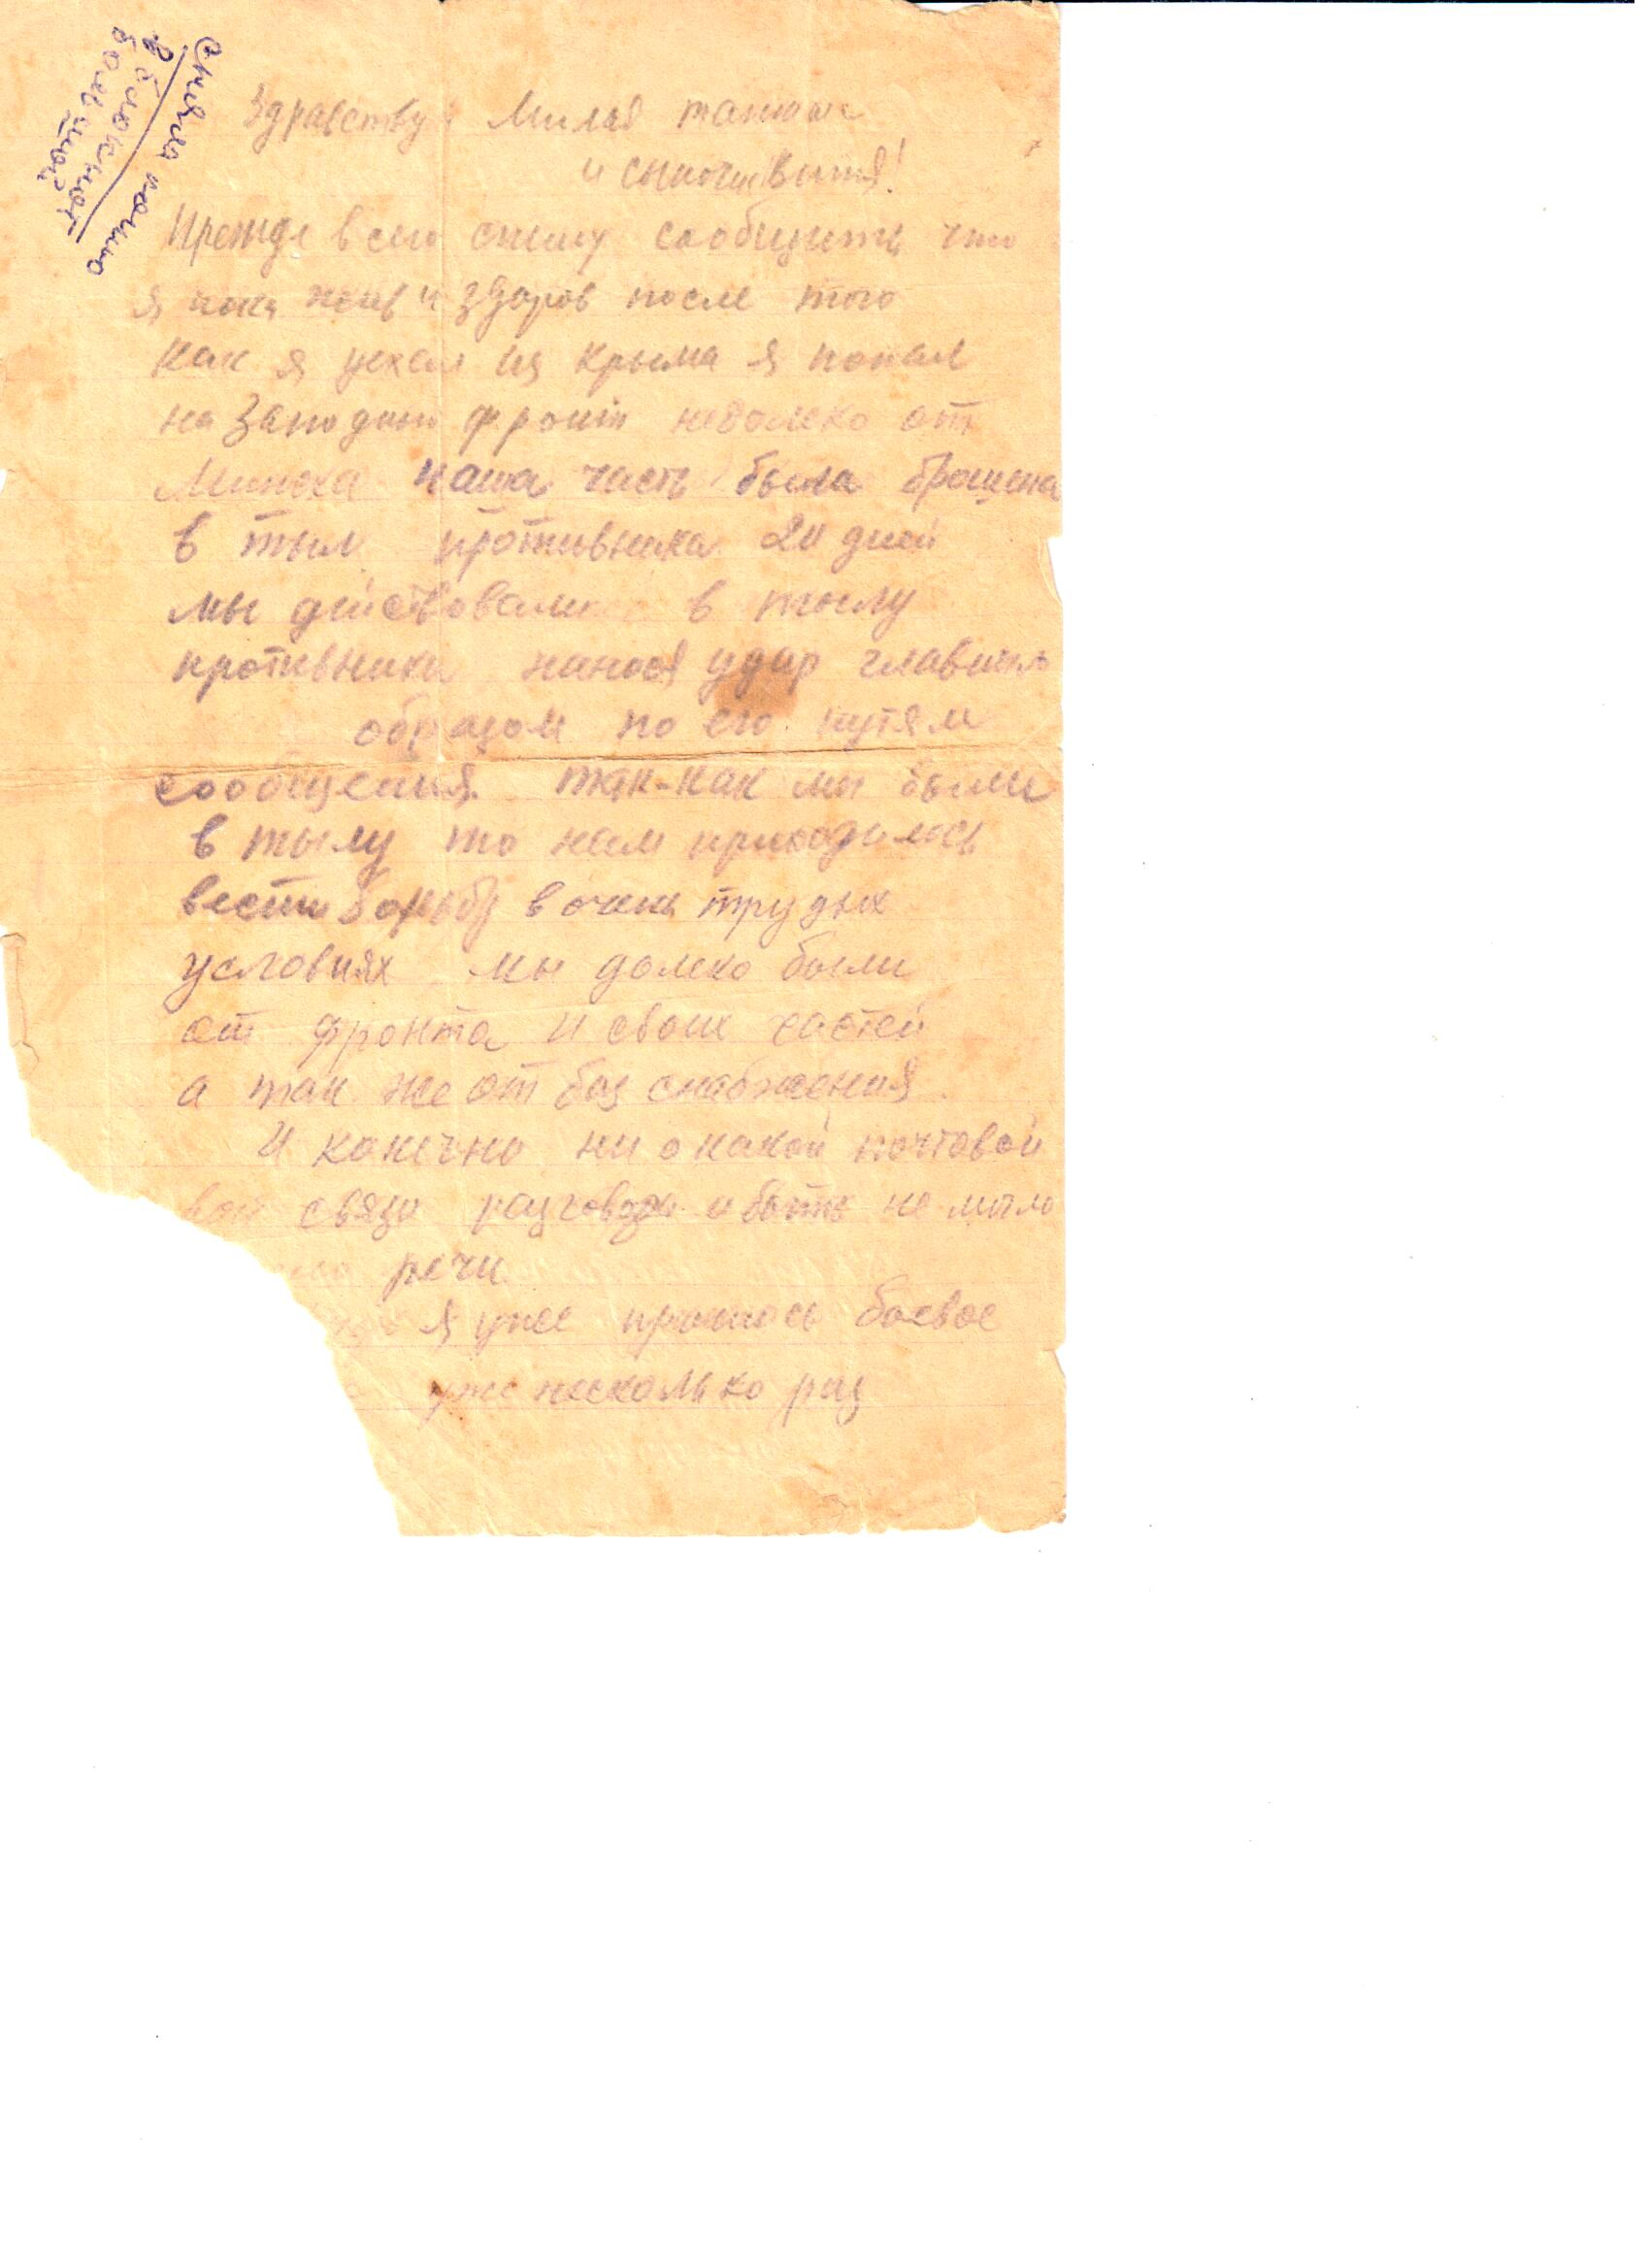 Здравствуй Милая танюша
и сыночик Витя!
Прежде всего спешу сообщить что
я пока жив и здоров после того
как я уехал из Крыма я попал
на Западный фронт недолеко от
Минска наша часть была брошена
в тыл противника 20 дней
мы дйствовали в тылу
противника нанося удар главным
образом по его путям
сообщения. так-как мы были
в тылу то нам приходилось
вести борьбу в очень трудых
условиях мы долеко были
от фронта и своих частей
а так же от баз снабжения.
И конечно ни о какой почтовой
вой связи разговора и быть не могло
речи
я уже пришлось боевое
уже несколько раз